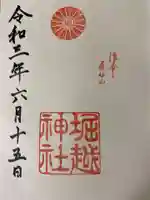 堀越
神社
令和三年六月十五日